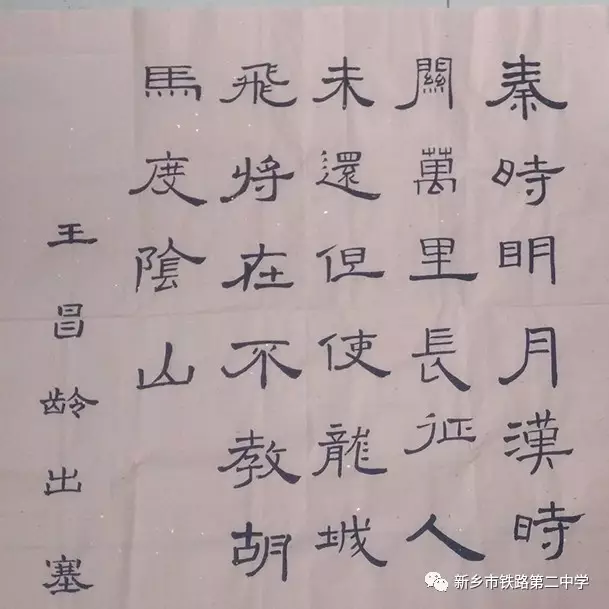 秦時明月漢時
關萬里長征人
未還但使龍城
飛将在不教胡
馬度陰山
王昌龄出塞
新乡市铁路第二中学